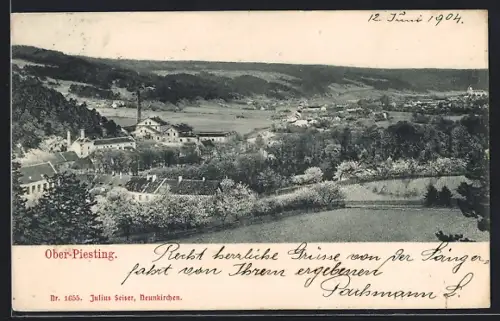 12. Juni 1904.
Ober-Piesting.
Recht herrliche Grüsse von der Sänger-
fahrt von Ihrem ergebenen
Pachmann L.
Nr. 1655. Julius Seiser, Neunkirchen.